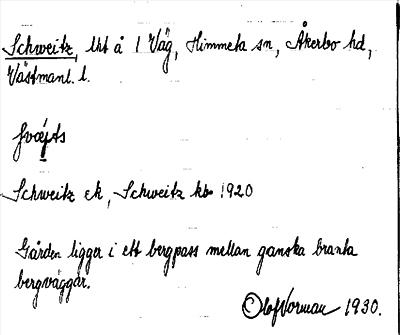 Schweitz, lht å 1 Väg, Himmeta sn, Åkerbo hd,
Västmanl. l.
Schweitz ek, Schweitz kb 1920
Gården ligger i ett bergpass mellan ganska branta
bergväggar.
Olof Norman 1930.